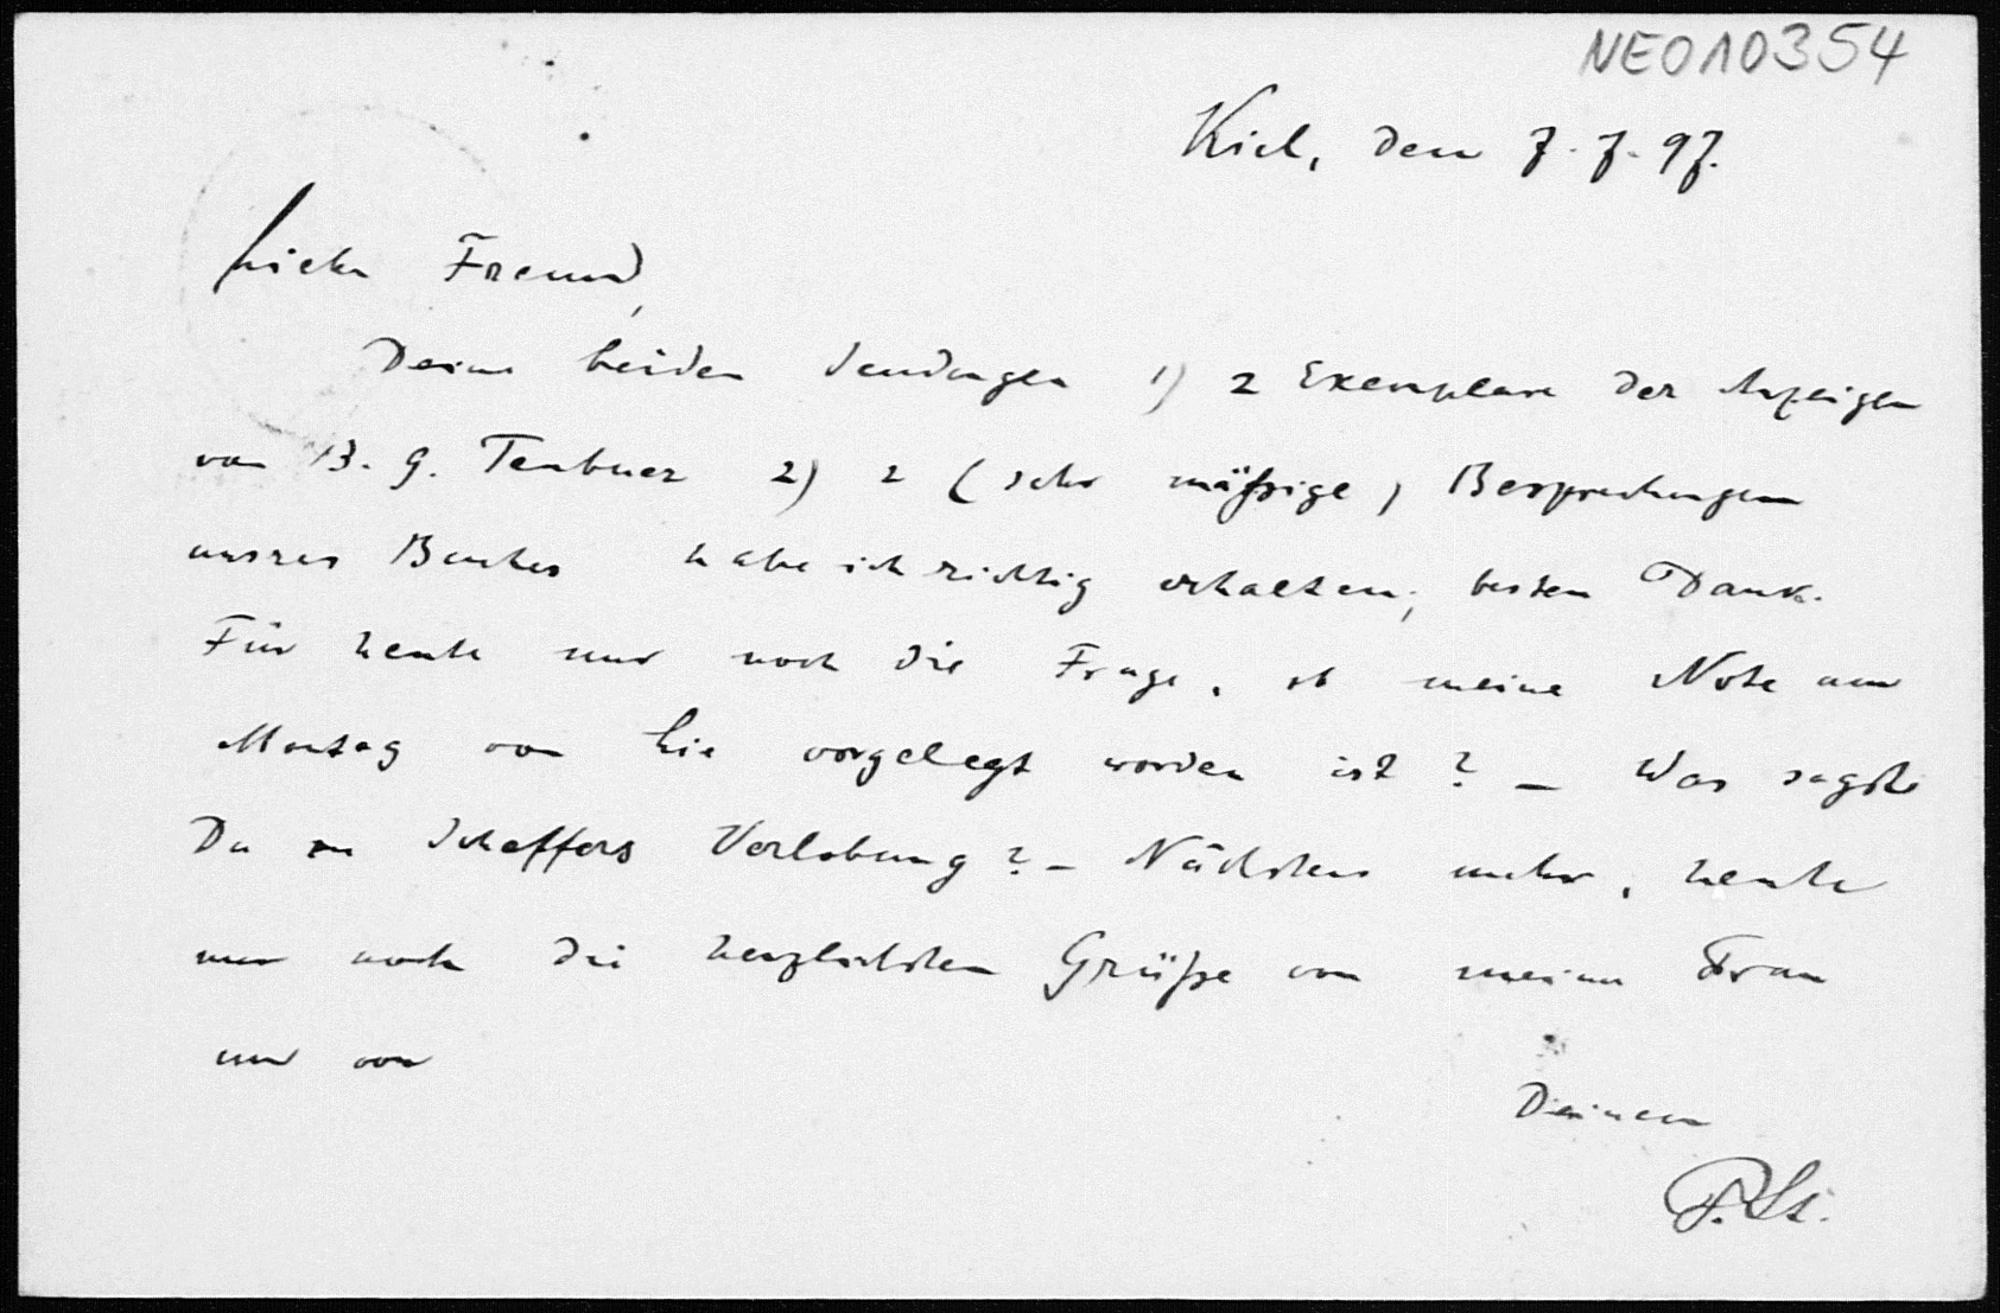 NEO10354
Kiel, den 7. 7. 97.
Lieber Freund,
Deine beiden Sendungen 1) 2 Exemplare der Anzeigen
von B. G. Teubner 2) 2 (sehr mäßige) Besprechungen
unsres Buches habe ich richtig erhalten; besten Dank.
Für heute nur noch die Frage, ob meine Note am
Montag von Lie vorgelegt worden ist? – Was sagst
Du zu Scheffers Verlobung? – Nächstens mehr, heute
nur noch die herzlichsten Grüße von meiner Frau
und von
Deinem
P. St.